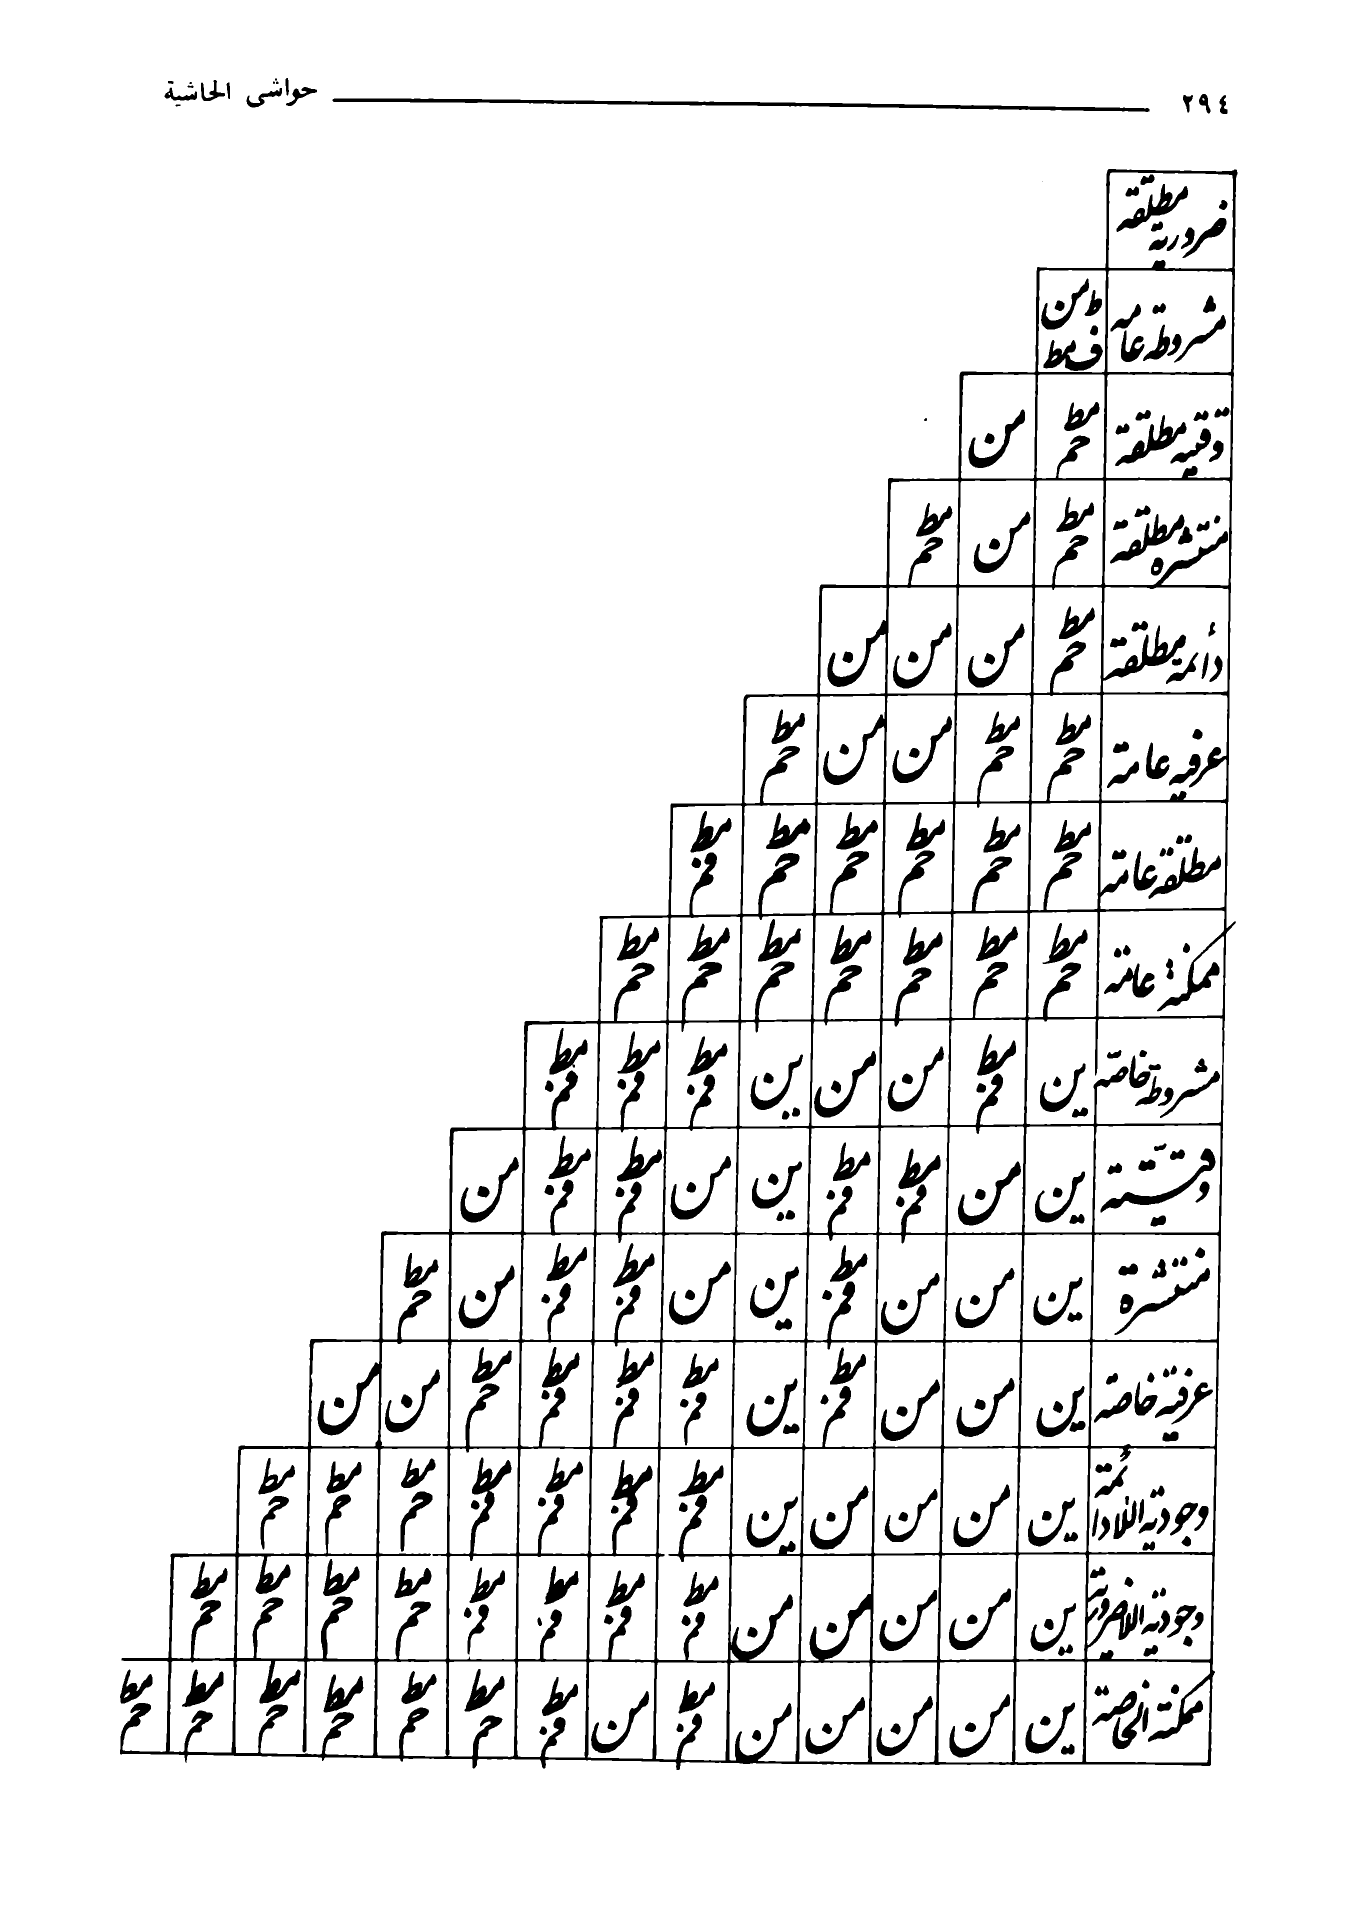 ٢٩٤ حواشى الحاشية
ضرورية مطلقة
مشروطة عامة ط من ف مط
وقتيه مطلقة مط حم من
منتشره مطلقة مط حم من مط حم
دائمة مطلقة مط حم من من من
عرفيه عامة مط حم مط حم من من مط حم
مطلقة عامة مط حم مط حم مط حم مط حم مط حم مط فم
ممكنة عامة مط حم مط حم مط حم مط حم مط حم مط حم مط حم
مشروطة خاصة ين مط فم من من ين مط فم مط فم مط فم
وقتية ين من مط فم مط فم ين من مط فم مط فم من
منتشرة ين من من مط فم ين من مط فم مط فم من مط حم
عرفية خاصة ين من من مط فم ين مط فم مط فم مط فم مط حم من من
وجودية اللادائمة ين من من من ين مط فم مط فم مط فم مط فم مط حم مط حم مط حم
وجودية اللاضرورية ين من من من من مط فم مط فم مط فم مط فم مط حم مط حم مط حم مط حم
ممكنة الخاصة ين من من من من مط فم من مط فم مط حم مط حم مط حم مط حم مط حم مط حم